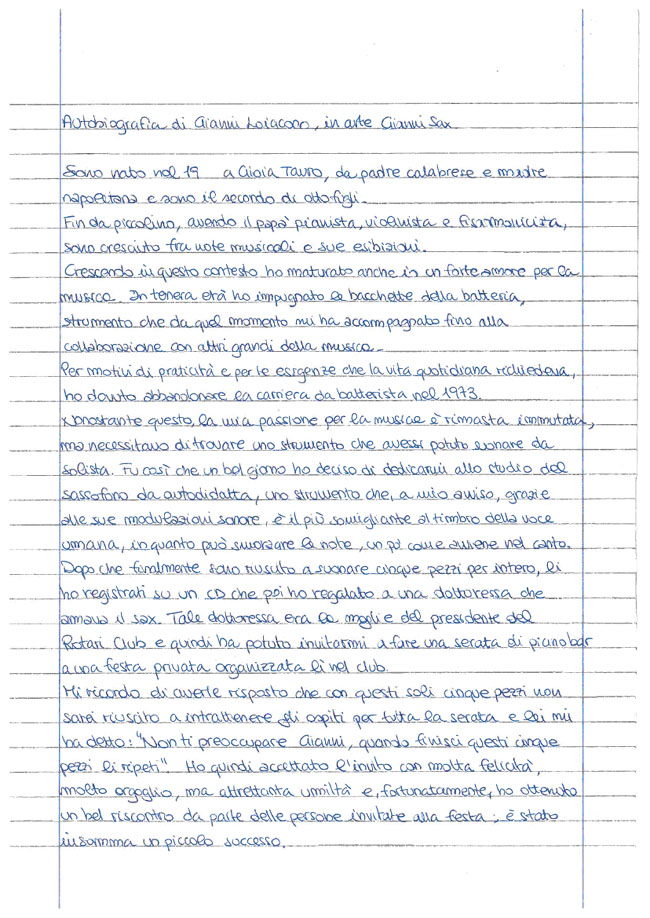 Autobiografia di Gianni Loiacono, in arte Gianni Sax
Sono nato nel 19 a Gioia Tauro, da padre calabrese e madre
napoletana e sono il secondo di otto figli.
Fin da piccolino, avendo il papà pianista, violinista e fisarmonicista,
sono cresciuto fra note musicali e sue esibizioni.
Crescendo in questo contesto ho maturato anche io un forte amore per la
musica. In tenera età ho impugnato le bacchette della batteria,
strumento che da quel momento mi ha accompagnato fino alla
collaborazione con altri grandi della musica.
Per motivi di praticità e per le esigenze che la vita quotidiana richiedeva,
ho dovuto abbandonare la carriera da batterista nel 1973.
Nonostante questo, la mia passione per la musica è rimasta immutata,
ma necessitavo di trovare uno strumento che avessi potuto suonare da
solista. Fu così che un bel giorno ho deciso di dedicarmi allo studio del
sassofono da autodidatta, uno strumento che, a mio avviso, grazie
alle sue modulazioni sonore, è il più somigliante al timbro della voce
umana, in quanto può smorzare le note, un po' come avviene nel canto.
Dopo che finalmente sono riuscito a suonare cinque pezzi per intero, li
ho registrati su un CD che poi ho regalato a una dottoressa che
amava il sax. Tale dottoressa era la moglie del presidente del
Rotari Club e quindi ha potuto invitarmi a fare una serata di piano bar
a una festa privata organizzata lì nel club.
Mi ricordo di averle risposto che con questi soli cinque pezzi non
sarei riuscito a intrattenere gli ospiti per tutta la serata e lei mi
ha detto: "Non ti preoccupare Gianni, quando finisci questi cinque
pezzi li ripeti". Ho quindi accettato l'invito con molta felicità,
molto orgoglio, ma altrettanta umiltà e, fortunatamente, ho ottenuto
un bel riscontro da parte delle persone invitate alla festa; è stato
insomma un piccolo successo.